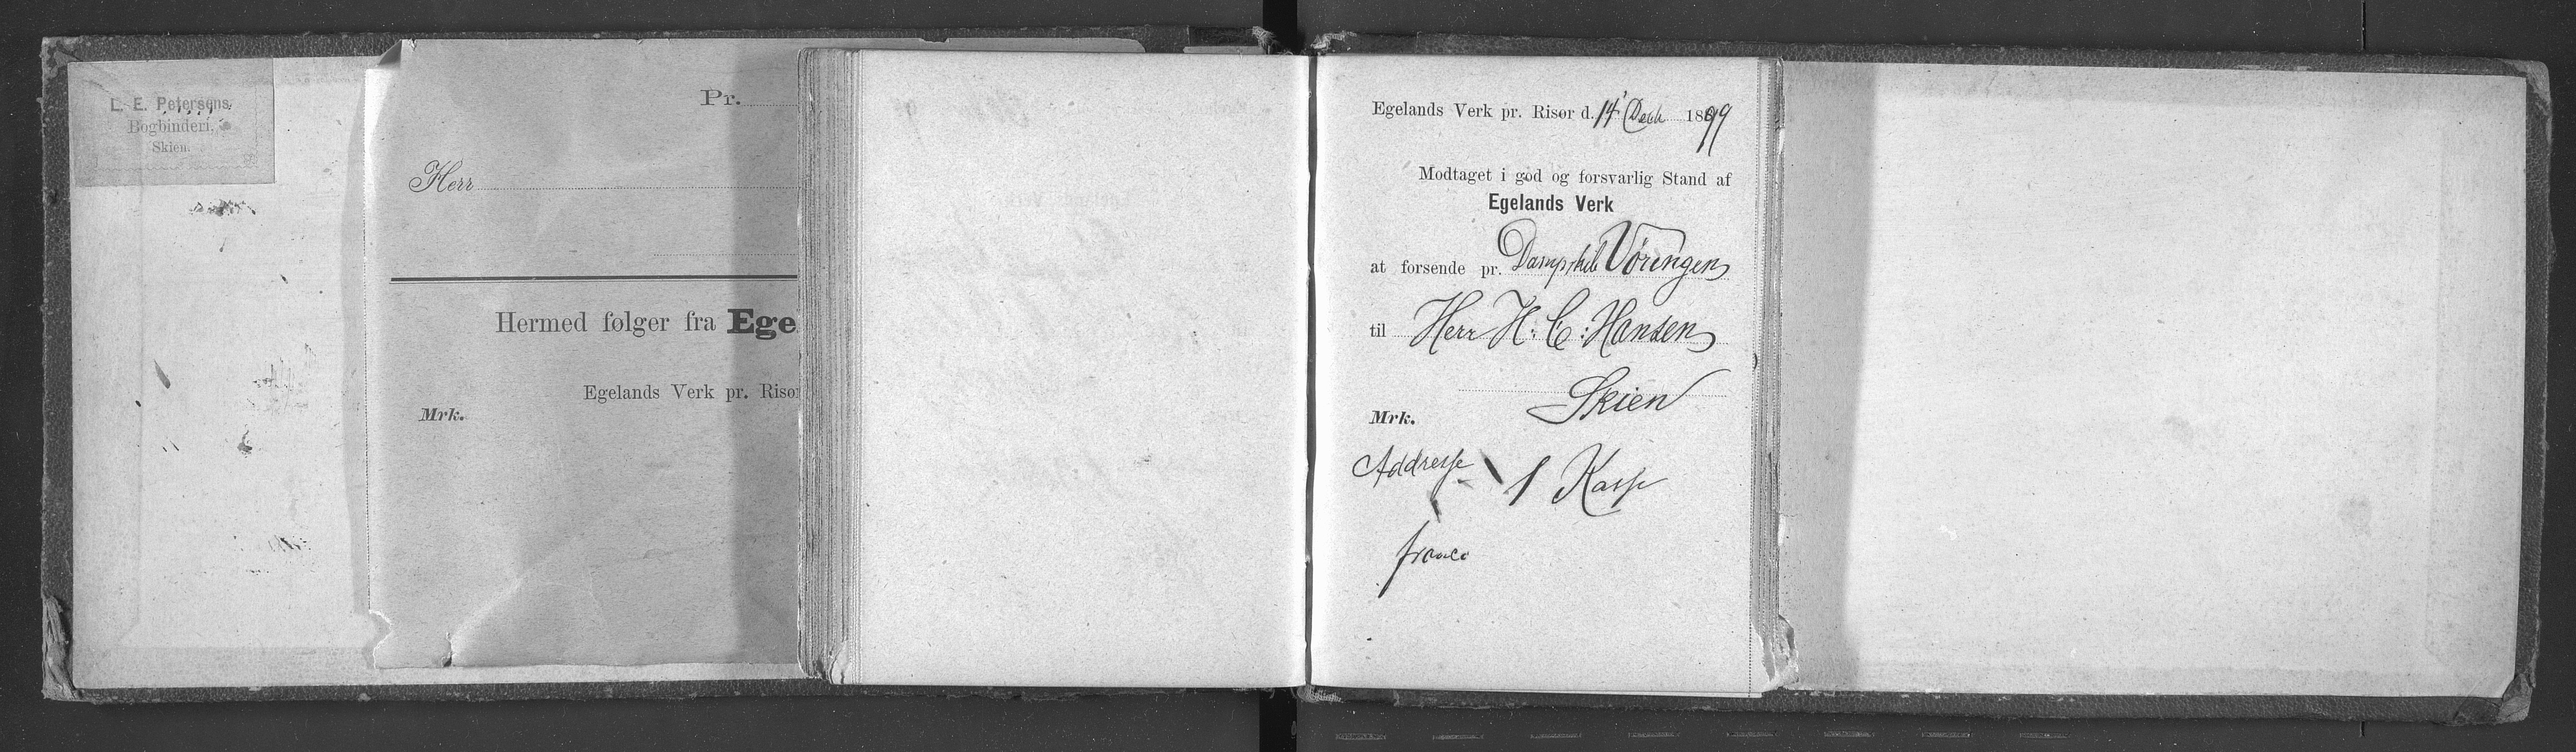 L. E. Petersens
Bogbinderi,
Skien.
Pr.
Herr
Hermed følger fra Ege
Egelands Verk pr. Risør
Mrk.
Egelands Verk pr. Risør d. 14' Decb 1899
Modtaget i god og forsvarlig Stand af
Egelands Verk
at forsende pr. Dampskib Vøringen
til Herr H. C. Hansen
Skien
Mrk.
Addresse 1 Kasse
franco